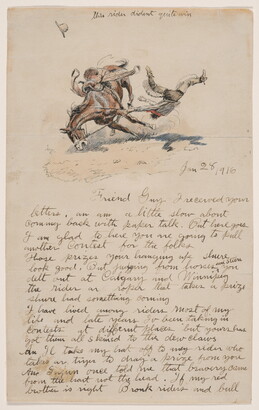 this rider dident quite win
Jan 28 1916
Friend Guy. I received your
letters, an am a little slow about
coming back with paper talk. But here goes
I am glad to hear you are going to pull
another contest for the folks
Those prizes your hanging up shure
look good. But judging from horses you seen
delt out at Calgary and Winnipeg
the rider or roper that takes a prize
shure had something coming
I have lived among riders most of my
life and late years Iv been taking in
contests at different places but yours has
got them all skined to the dew claws
an Il take my hat off to any rider who
takes or trys to drag a prize from you
An once told me that bravery came
from the hart not the head. If my red
brother is right Bronk riders and bull